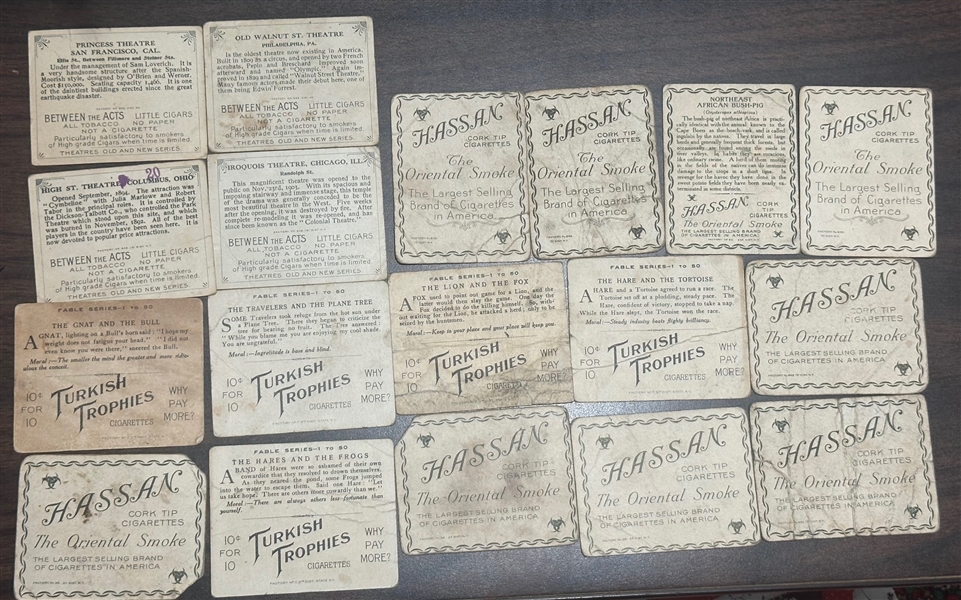 PRINCESS THEATRE
SAN FRANCISCO, CAL.
Ellis St., Between Fillmore and Steiner Sts.
Under the management of Sam Loverich. It is
a very handsome structure after the Spanish-
Moorish style, designed by O'Brien and Werner.
Cost $105,000. Seating capacity 1,466. It is one
of the daintiest buildings erected since the great
earthquake disaster.
BETWEEN THE ACTS LITTLE CIGARS
ALL TOBACCO NO PAPER
NOT A CIGARETTE
Particularly satisfactory to smokers
of High grade Cigars when time is limited.
THEATRES OLD AND NEW SERIES.
OLD WALNUT ST. THEATRE
PHILADELPHIA, PA.
Is the oldest theatre now existing in America.
Built in 1809 as a circus, and opened by two French
acrobats, Pepin and Breschard. Improved soon
afterward and named "Olympic." Again im-
proved in 1819 and called "Walnut Street Theatre."
Many famous actors made their debut here, one of
them being Edwin Forrest.
BETWEEN THE ACTS LITTLE CIGARS
ALL TOBACCO NO PAPER
NOT A CIGARETTE
Particularly satisfactory to smokers
of High grade Cigars when time is limited.
THEATRES OLD AND NEW SERIES.
20
HIGH ST. THEATRE, COLUMBUS, OHIO
Opened September, 1894. The attraction was
"Cymbeline" with Julia Marlowe and Robert
Taber in the principal roles. It is controlled by
the Dickson-Talbott Co., who controlled the Park
Theatre which stood upon this site, and which
was burned in November, 1892. All of the best
players in the country have been seen here. It is
now devoted to popular price attractions.
BETWEEN THE ACTS LITTLE CIGARS
ALL TOBACCO NO PAPER
NOT A CIGARETTE
Particularly satisfactory to smokers
of High grade Cigars when time is limited.
THEATRES OLD AND NEW SERIES.
IROQUOIS THEATRE, CHICAGO, ILL.
Randolph St.
This magnificent theatre was opened to the
public on Nov. 23rd, 1903. With its spacious and
imposing stairway and immense stage, this temple
of the drama was generally conceded to be the
most beautiful theatre in the West. Five weeks
after the opening, it was destroyed by fire. After
complete re-modeling it was re-opened, and has
since been known as the "Colonial Theatre."
BETWEEN THE ACTS LITTLE CIGARS
ALL TOBACCO NO PAPER
NOT A CIGARETTE
Particularly satisfactory to smokers
of High grade Cigars when time is limited.
THEATRES OLD AND NEW SERIES.
HASSAN
CORK TIP
CIGARETTES
The
Oriental Smoke
The Largest Selling
Brand of Cigarettes
in America
HASSAN
CORK TIP
CIGARETTES
The
Oriental Smoke
The Largest Selling
Brand of Cigarettes
in America
NORTHEAST
AFRICAN BUSH-PIG
The bush-pig of northeast Africa is practi-
cally identical with the animal known in the
HASSAN
CORK TIP
CIGARETTES
The Oriental Smoke
THE LARGEST SELLING BRAND
OF CIGARETTES IN AMERICA
HASSAN
CORK TIP
CIGARETTES
The
Oriental Smoke
The Largest Selling
Brand of Cigarettes
in America
FABLE SERIES—1 TO 50
THE GNAT AND THE BULL
A GNAT, lighting on a Bull's horn said: "I hope my
weight does not fatigue your head." "I did not
even know you were there," sneered the Bull.
Moral:—The smaller the mind the greater and more ridic-
ulous the conceit.
10¢ FOR 10
TURKISH TROPHIES
CIGARETTES
WHY PAY MORE?
FABLE SERIES—1 TO 50
THE TRAVELERS AND THE PLANE TREE
SOME Travelers took refuge from the hot sun under
a Plane Tree. There they began to criticize the
tree for bearing no fruit. The Tree answered:
"While you blame me you are enjoying my cool shade.
You are ungrateful."
Moral:—Ingratitude is base and blind.
10¢ FOR 10
TURKISH TROPHIES
CIGARETTES
WHY PAY MORE?
FABLE SERIES—1 TO 50
THE LION AND THE FOX
A FOX used to point out game for a Lion, and the
latter would then slay the game. One day the
Fox decided to do the killing himself. So, with-
out waiting for the Lion, he attacked a herd; only to be
seized by the huntsmen.
Moral:—Keep in your place and your place will keep you.
10¢ FOR 10
TURKISH TROPHIES
CIGARETTES
WHY PAY MORE?
FABLE SERIES—1 TO 50
THE HARE AND THE TORTOISE
A HARE and a Tortoise agreed to run a race. The
Tortoise set off at a plodding, steady pace. The
Hare, confident of victory, stopped to take a nap.
While the Hare slept, the Tortoise won the race.
Moral:—Steady industry beats flighty brilliancy.
10¢ FOR 10
TURKISH TROPHIES
CIGARETTES
WHY PAY MORE?
HASSAN
CORK TIP
CIGARETTES
The Oriental Smoke
THE LARGEST SELLING BRAND
OF CIGARETTES IN AMERICA
HASSAN
CORK TIP
CIGARETTES
The Oriental Smoke
THE LARGEST SELLING BRAND
OF CIGARETTES IN AMERICA
FABLE SERIES—1 TO 50
THE HARES AND THE FROGS
A BAND of Hares were so ashamed of their own
cowardice that they resolved to drown themselves.
As they neared the pond, some Frogs jumped
into the water to escape them. Said one Hare: "Let
us take hope! There are others more cowardly than we."
Moral:—There are always others less fortunate than
yourself.
10¢ FOR 10
TURKISH TROPHIES
CIGARETTES
WHY PAY MORE?
HASSAN
CORK TIP
CIGARETTES
The Oriental Smoke
THE LARGEST SELLING BRAND
OF CIGARETTES IN AMERICA
HASSAN
CORK TIP
CIGARETTES
The Oriental Smoke
THE LARGEST SELLING BRAND
OF CIGARETTES IN AMERICA
HASSAN
CORK TIP
CIGARETTES
The Oriental Smoke
THE LARGEST SELLING BRAND
OF CIGARETTES IN AMERICA